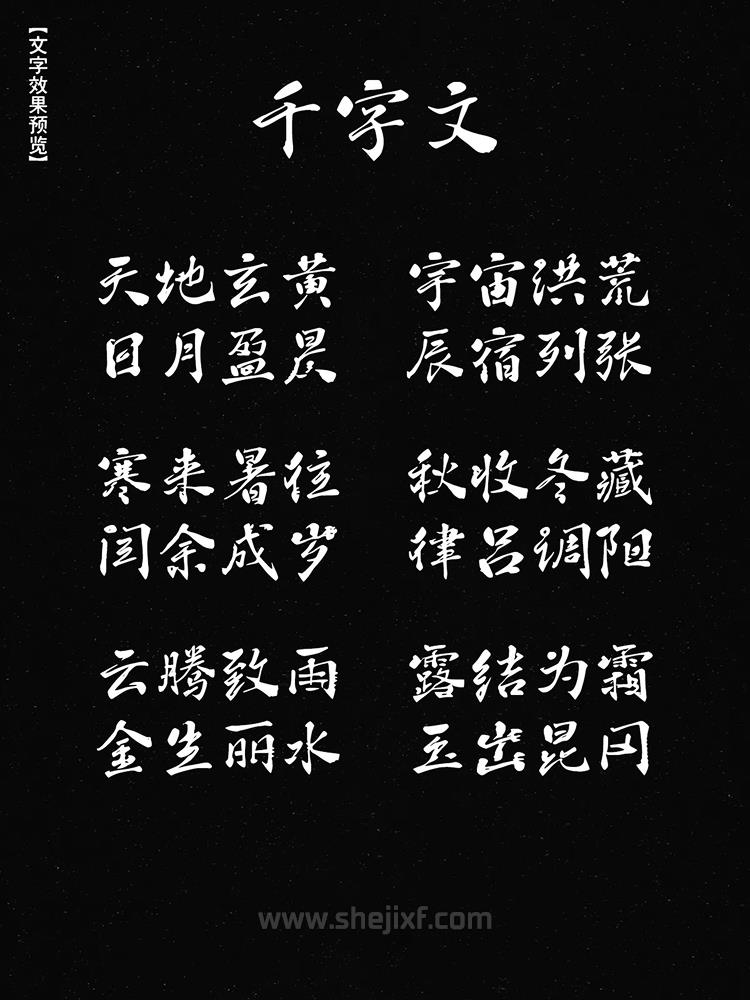 【文字效果预览】
千字文
天地玄黄 宇宙洪荒
日月盈昃 辰宿列张
寒来暑往 秋收冬藏
闰余成岁 律吕调阳
云腾致雨 露结为霜
金生丽水 玉出昆冈
www.shejixf.com